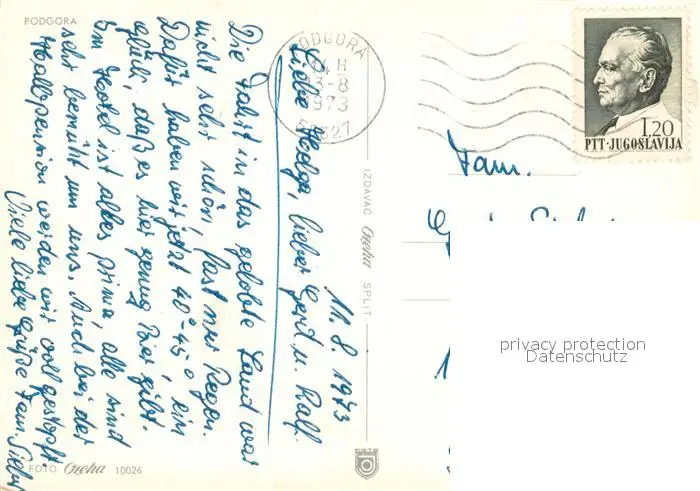 PODGORA
11.8.1973
Liebe Helga, lieber Gerd u. Ralf.
Die Fahrt in das gelobte Land war
nicht sehr schön, fast nur Regen.
Dafür haben wir jetzt 40°-45° ein
Glück, daß es hier genug Bier gibt.
Im Hotel ist alles prima, alle sind
sehr bemüht um uns. Auch bei der
Halbpension werden wir vollgestopft.
Viele liebe Grüße Fam.
FOTO Ozeha 10026
IZDAVAČ Ozeha SPLIT
PODGORA
13-8
1973
PTT·JUGOSLAVIJA
1.20
Fam.
privacy protection
Datenschutz